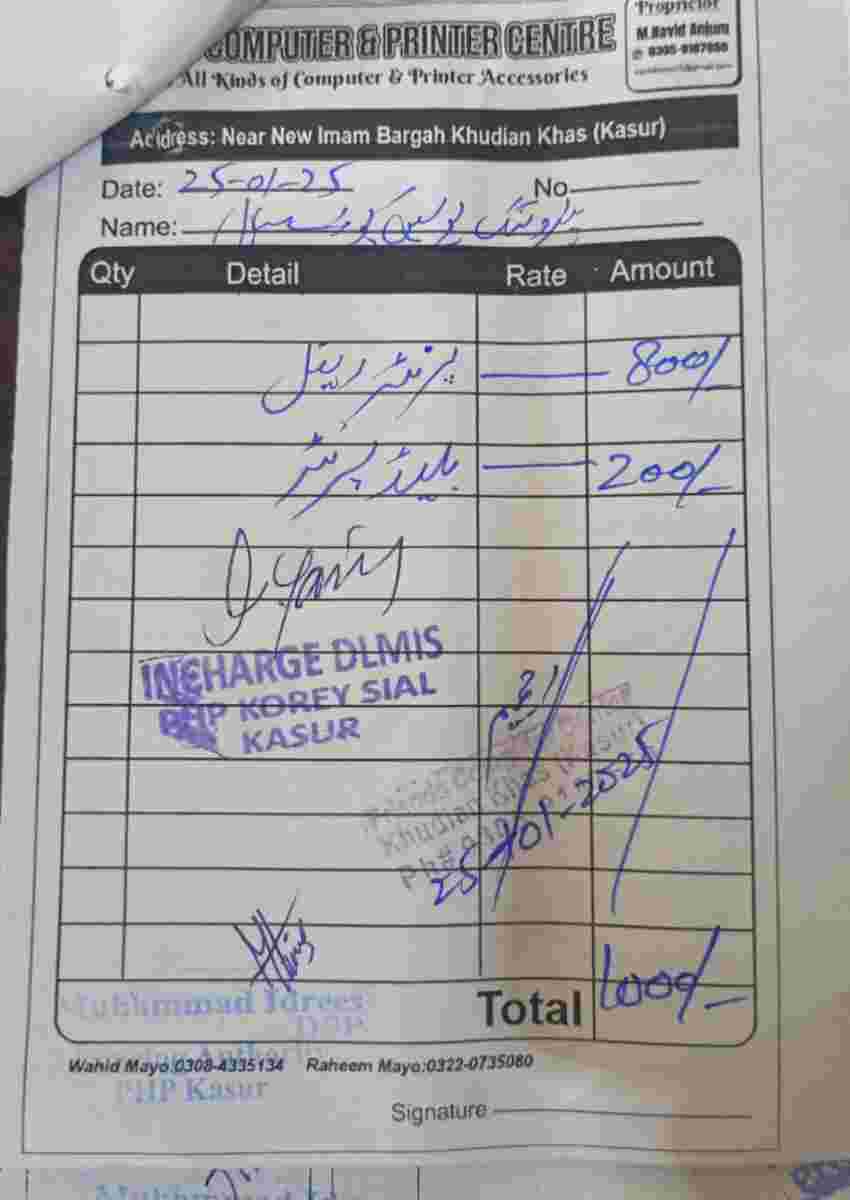 COMPUTER & PRINTER CENTRE
All Kinds of Computer & Printer Accessories
Proprietor
M.Navid Anjum
Address: Near New Imam Bargah Khudian Khas (Kasur)
Date: 25-01-25 No
Name: پولیس
Qty Detail Rate Amount
پرنٹر ریپئر 800/-
بلیڈ پرنٹر 200/-
INCHARGE DLMIS
PHP KOREY SIAL
KASUR
Khudian Khas (Kasur)
Ph#
25-01-2025
Total 1000/-
Muhammad Idrees
DSP
PHP Kasur
Wahid Mayo:0308-4335134 Raheem Mayo:0322-0735080
Signature